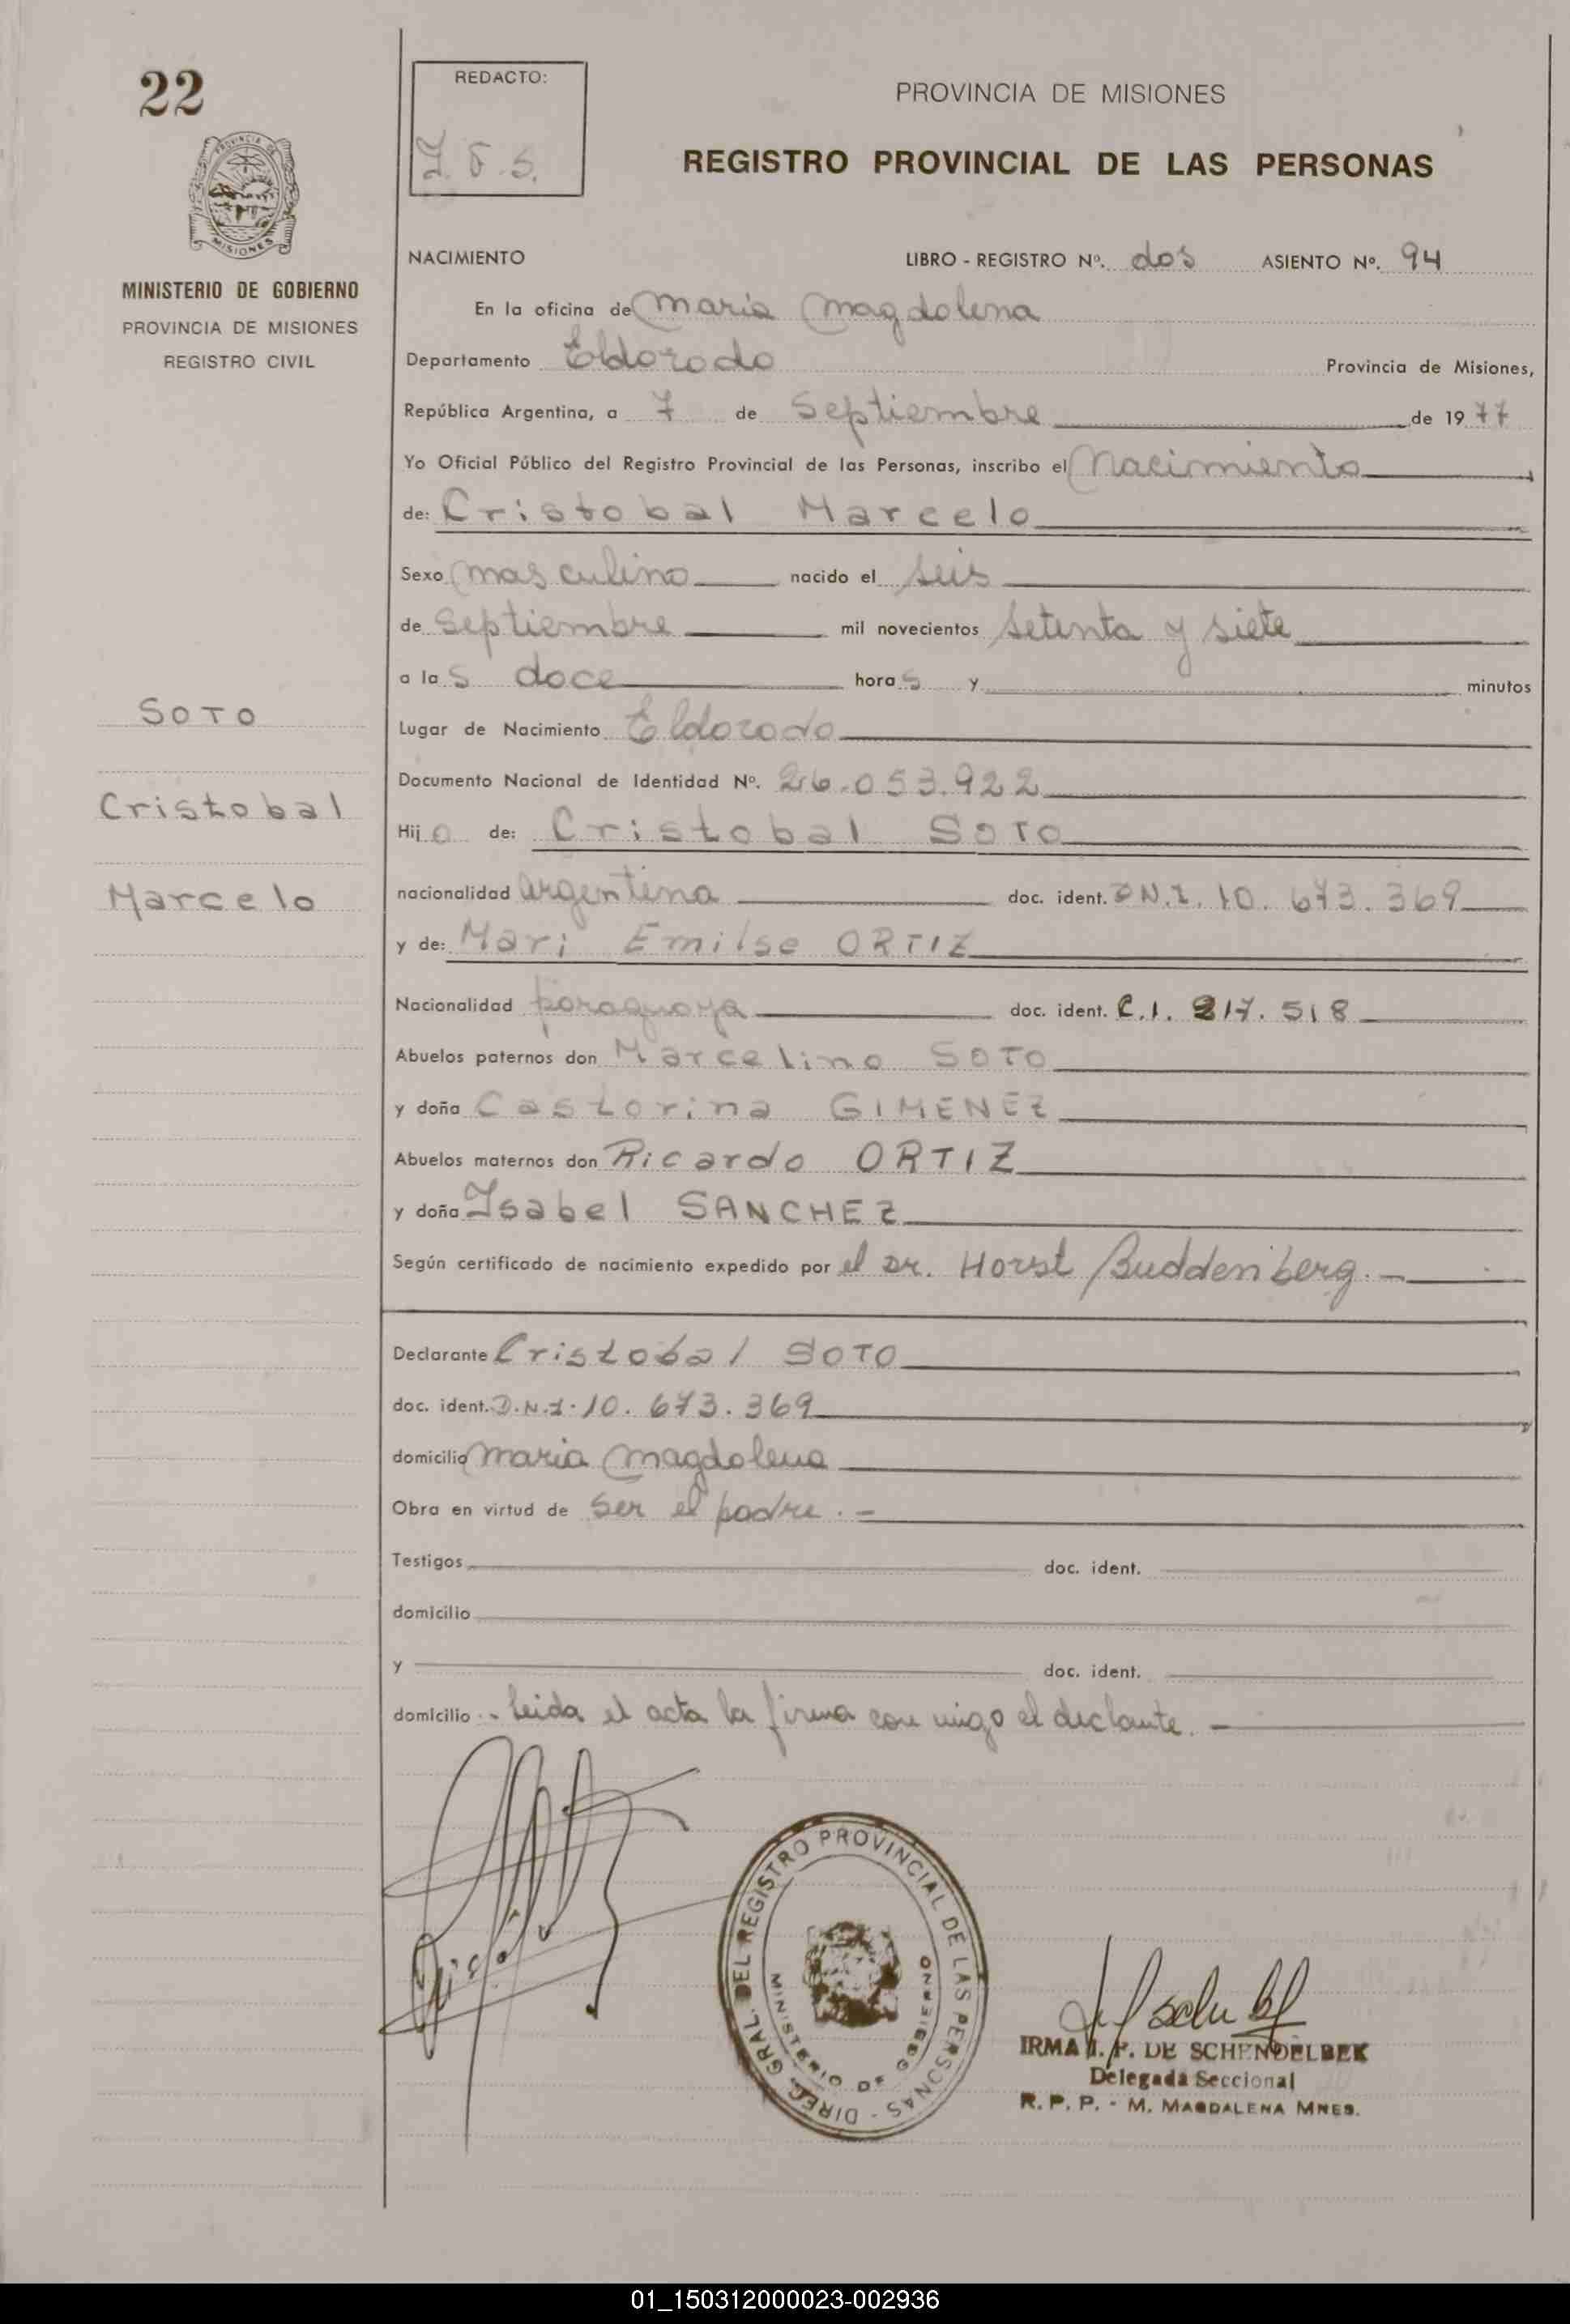 22
REDACTO:
PROVINCIA DE MISIONES
REGISTRO PROVINCIAL DE LAS PERSONAS
PROVINCIA DE
MISIONES
MINISTERIO DE GOBIERNO
PROVINCIA DE MISIONES
REGISTRO CIVIL
NACIMIENTO LIBRO - REGISTRO Nº. dos ASIENTO Nº. 94
En la oficina de Maria Magdalena
Departamento Eldorado Provincia de Misiones,
República Argentina, a 7 de Septiembre de 1977
Yo Oficial Público del Registro Provincial de las Personas, inscribo el Nacimiento
de: Cristobal Marcelo
Sexo masculino nacido el seis
de septiembre mil novecientos setenta y siete
a las doce horas y minutos
SOTO
Cristobal
Marcelo
Lugar de Nacimiento Eldorado
Documento Nacional de Identidad Nº. 26.053.922
Hijo de: Cristobal SOTO
nacionalidad argentina doc. ident. D.N.I. 10.673.369
y de: Mari Emilse ORTIZ
Nacionalidad paraguaya doc. ident. C.I. 217.518
Abuelos paternos don Marcelino SOTO
y doña Castorina GIMENEZ
Abuelos maternos don Ricardo ORTIZ
y doña Isabel SANCHEZ
Según certificado de nacimiento expedido por el Dr. Horst Buddenberg.-
Declarante Cristobal SOTO
doc. ident. D.N.I. 10.673.369
domicilio Maria Magdalena
Obra en virtud de ser el padre.-
Testigos doc. ident.
domicilio
y doc. ident.
domicilio - leida el acta la firma con migo el declante.-
DIREC. GRAL. DEL REGISTRO PROVINCIAL DE LAS PERSONAS -
MINISTERIO DE GOBIERNO
IRMA I. F. DE SCHENDELBEK
Delegada Seccional
R. P. P. - M. MAGDALENA MNES.
01_150312000023-002936